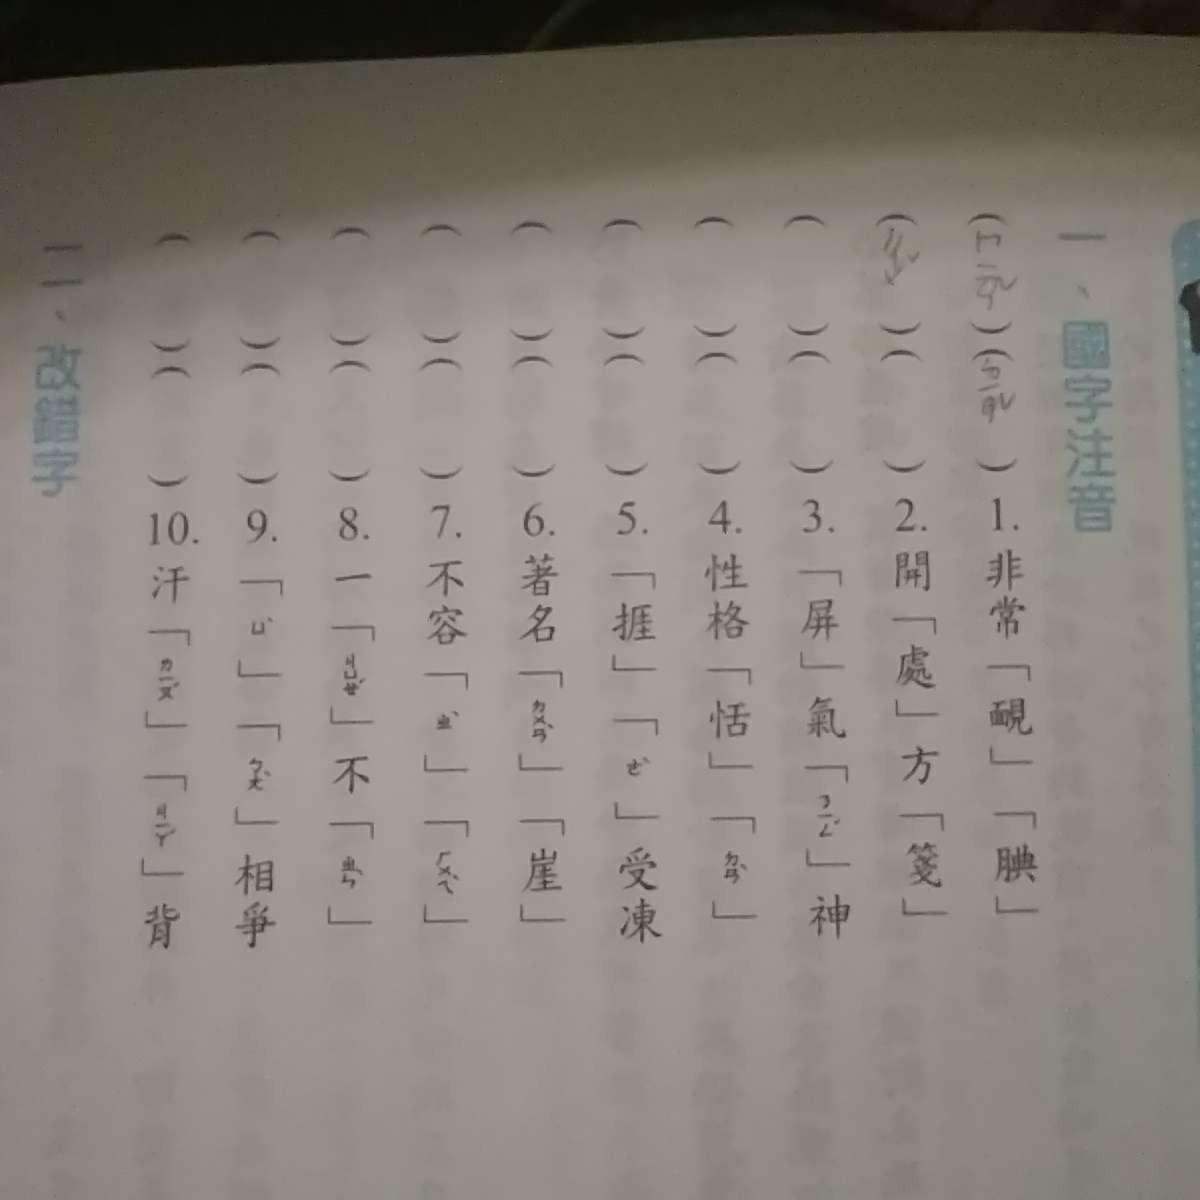 一、國字注音
(ㄇㄧㄢˇ)(ㄊㄧㄢˇ)1. 非常「靦」「腆」
(ㄔㄨˇ)( )2. 開「處」方「箋」
( )( )3. 「屏」氣「ㄋㄧㄥˊ」神
( )( )4. 性格「恬」「ㄉㄢˋ」
( )( )5. 「捱」「ㄜˋ」受凍
( )( )6. 著名「ㄉㄨㄢˋ」「崖」
( )( )7. 不容「ㄓˋ」「ㄏㄨㄟˋ」
( )( )8. 一「ㄐㄩㄝˊ」不「ㄓㄣˋ」
( )( )9. 「ㄩˋ」「ㄅㄤˋ」相爭
( )( )10. 汗「ㄌㄧㄡˊ」「ㄐㄧㄚˊ」背
二、改錯字